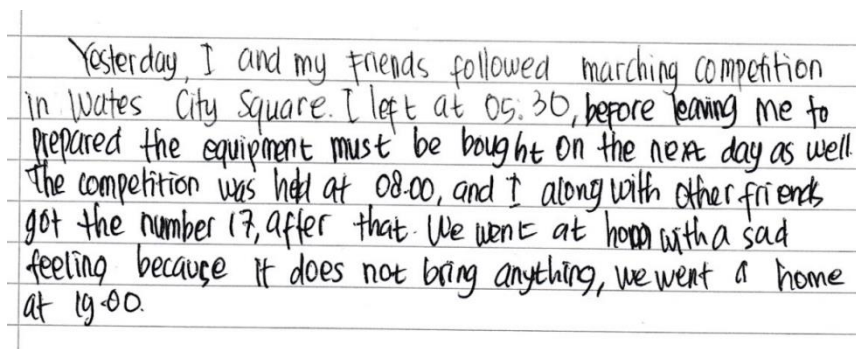 Yesterday, I and my friends followed marching competition
in Wates City Square. I left at 05.30, before leaving me to
prepared the equipment must be bought on the next day as well.
The competition was held at 08.00, and I along with other friends
got the number 17, after that. We went at home with a sad
feeling because it does not bring anything, we went a home
at 19.00.